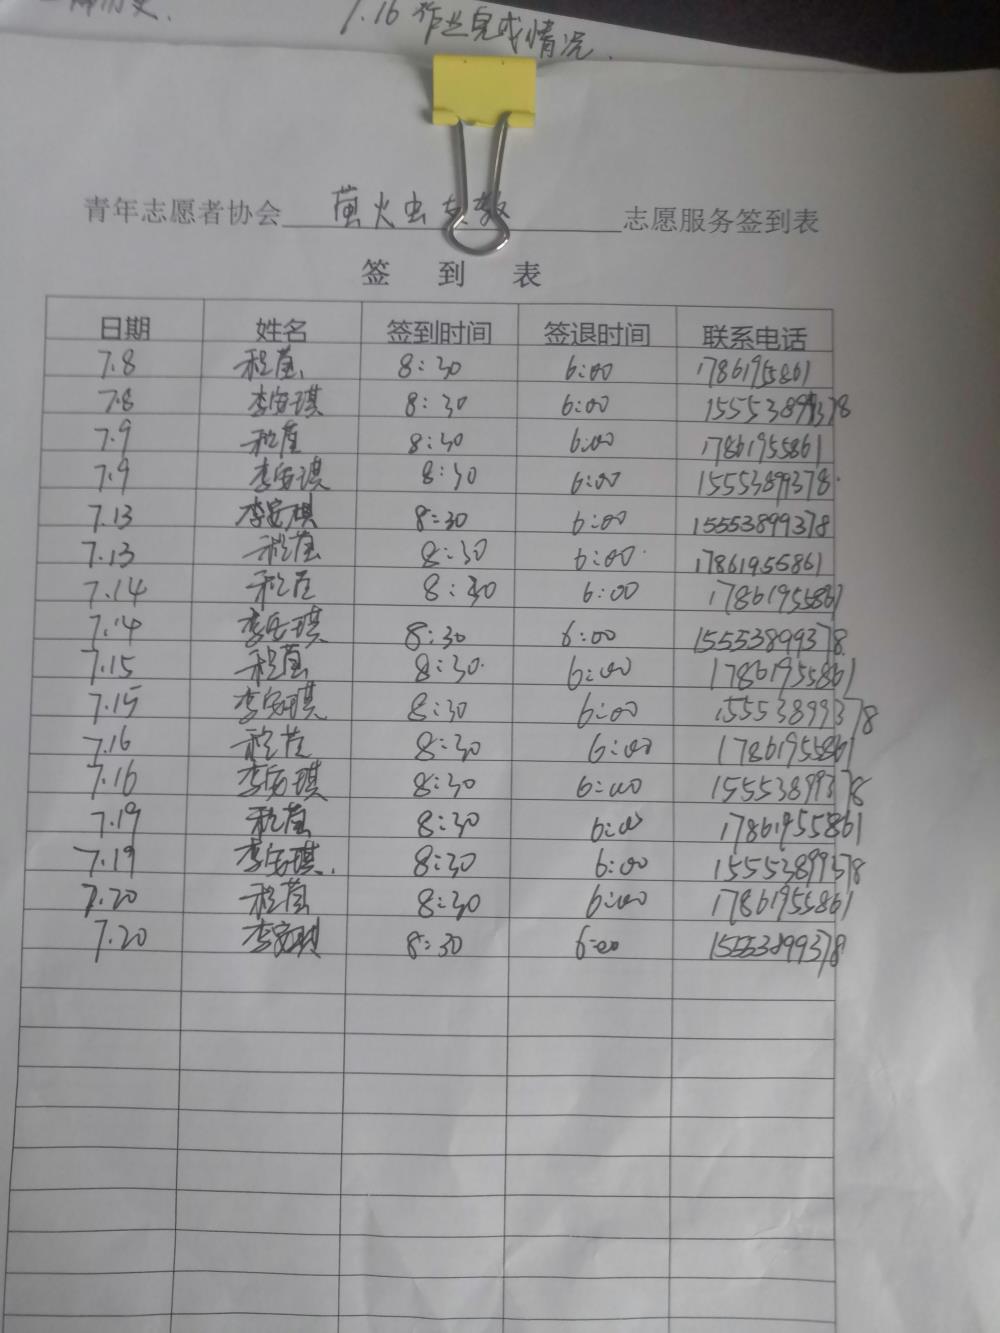 7.16 作业完成情况.
青年志愿者协会 萤火虫支教 志愿服务签到表
签 到 表
日期 姓名 签到时间 签退时间 联系电话
7.8 程萤 8:30 6:00 17861955861
7.8 李安琪 8:30 6:00 15553899378
7.9 程萤 8:30 6:00 17861955861
7.9 李安琪 8:30 6:00 15553899378
7.13 李安琪 8:30 6:00 15553899378
7.13 程萤 8:30 6:00 17861955861
7.14 程萤 8:30 6:00 17861955861
7.14 李安琪 8:30 6:00 15553899378
7.15 程萤 8:30 6:00 17861955861
7.15 李安琪 8:30 6:00 15553899378
7.16 程萤 8:30 6:00 17861955861
7.16 李安琪 8:30 6:00 15553899378
7.19 程萤 8:30 6:00 17861955861
7.19 李安琪 8:30 6:00 15553899378
7.20 程萤 8:30 6:00 17861955861
7.20 李安琪 8:30 6:00 15553899378